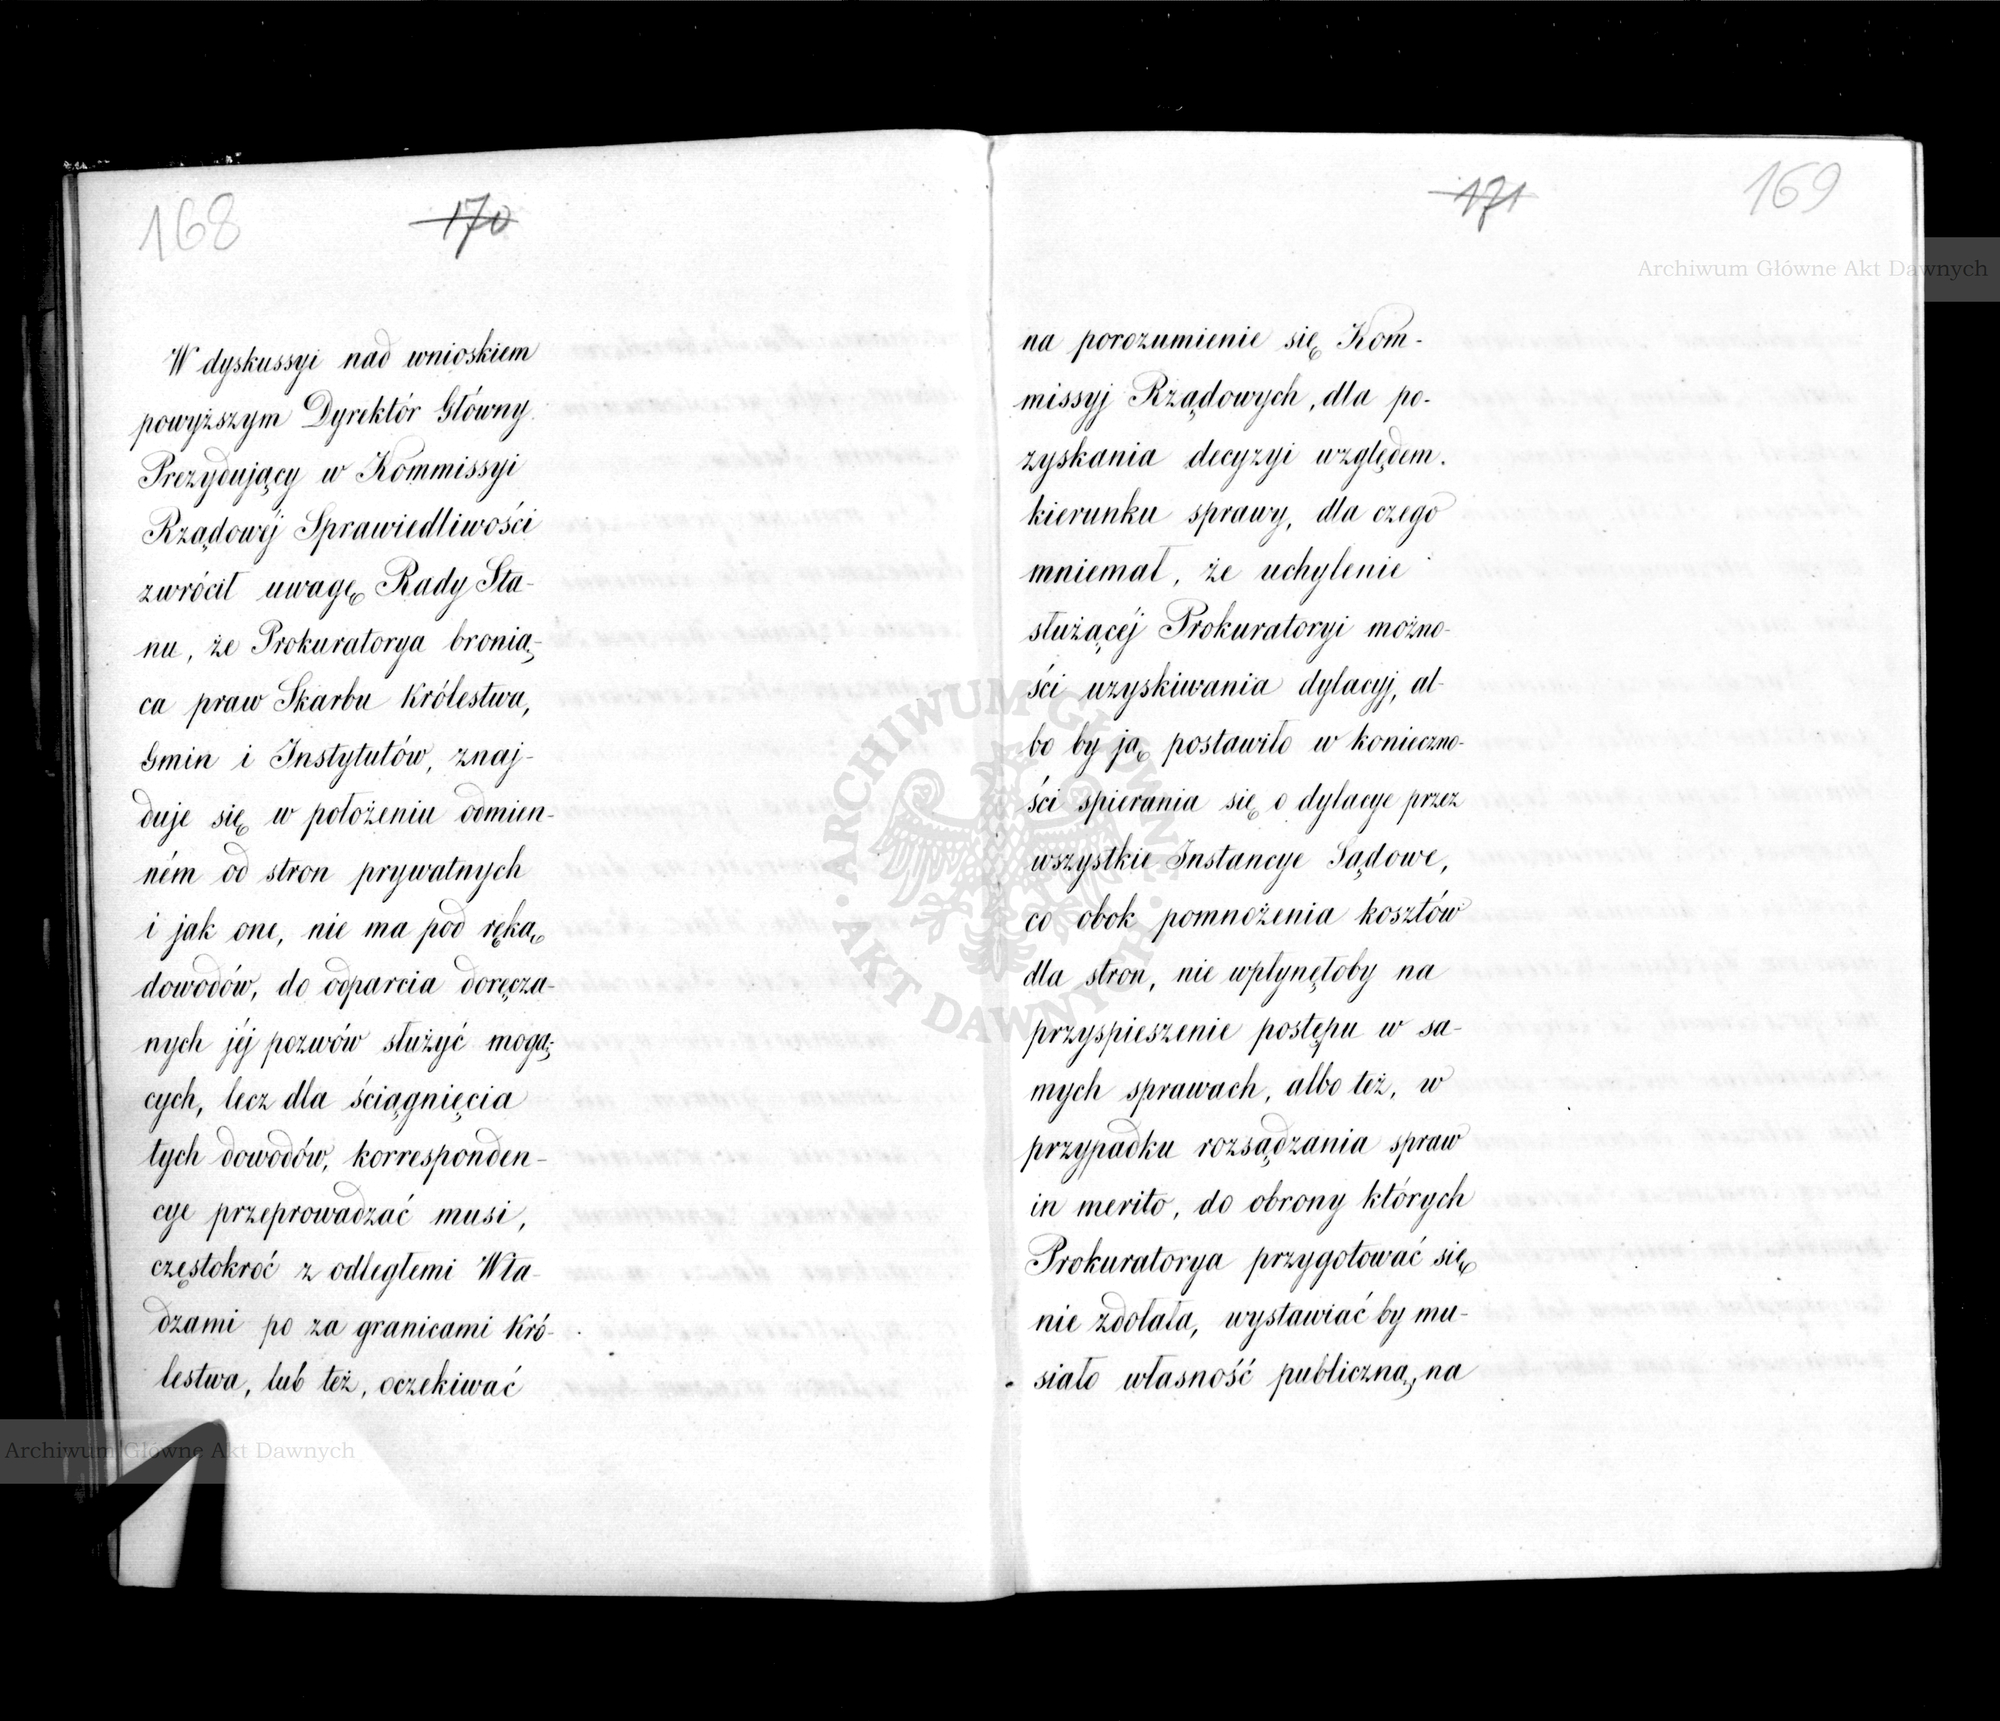 168
170
W dyskussyi nad wnioskiem
powyższym Dyrektór Główny
Prezydujący w Kommissyi
Rządowéj Sprawiedliwości
zwrócił uwagę Rady Sta-
nu, że Prokuratorya bronią-
ca praw Skarbu Królestwa,
Gmin i Instytutów, znaj-
duje się w położeniu odmien-
ném od stron prywatnych
i jak one, nie ma pod ręką
dowodów, do odparcia doręcza-
nych jéj pozwów służyć mogą-
cych, lecz dla ściągnięcia
tych dowodów, korresponden-
cye przeprowadzać musi,
częstokroć z odległemi Wła-
dzami po za granicami Kró-
lestwa, lub też, oczekiwać
171
169
na porozumienie się Kom-
missyj Rządowych, dla po-
zyskania decyzyi względem
kierunku sprawy, dla czego
mniemał, że uchylenie
służącéj Prokuratoryi możno-
ści uzyskiwania dylacyj, al-
bo by ją postawiło w konieczno-
ści spierania się o dylacye przez
wszystkie Instancye Sądowe,
co obok pomnożenia kosztów
dla stron, nie wpłynęłoby na
przyspieszenie postępu w sa-
mych sprawach, albo też, w
przypadku rozsądzania spraw
in merito, do obrony których
Prokuratorya przygotować się
nie zdołała, wystawiać by mu-
siało własność publiczną, na
Archiwum Główne Akt Dawnych
ARCHIWUM GŁÓWNE
AKT DAWNYCH
Archiwum Główne Akt Dawnych